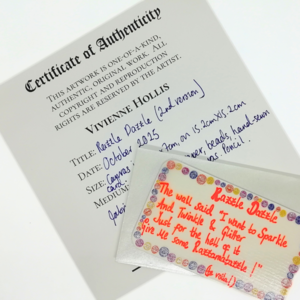 Certificate of Authenticity
THIS ARTWORK IS ONE-OF-A-KIND,
AUTHENTIC, ORIGINAL WORK. ALL
COPYRIGHT AND REPRODUCTION
RIGHTS ARE RESERVED BY THE ARTIST.
VIVIENNE HOLLIS
TITLE: Razzle Dazzle [2nd version]
DATE: October 2025
SIZE: Canvas 7cm on 15.2cm x 15.2cm
card.
MEDIUM: paper, beads, hand-sewn
Pencil.
Razzle Dazzle
The wall said "I want to Sparkle
And Twinkle & Glitter
Just for the hell of it
give me some Razzamadazzle!"